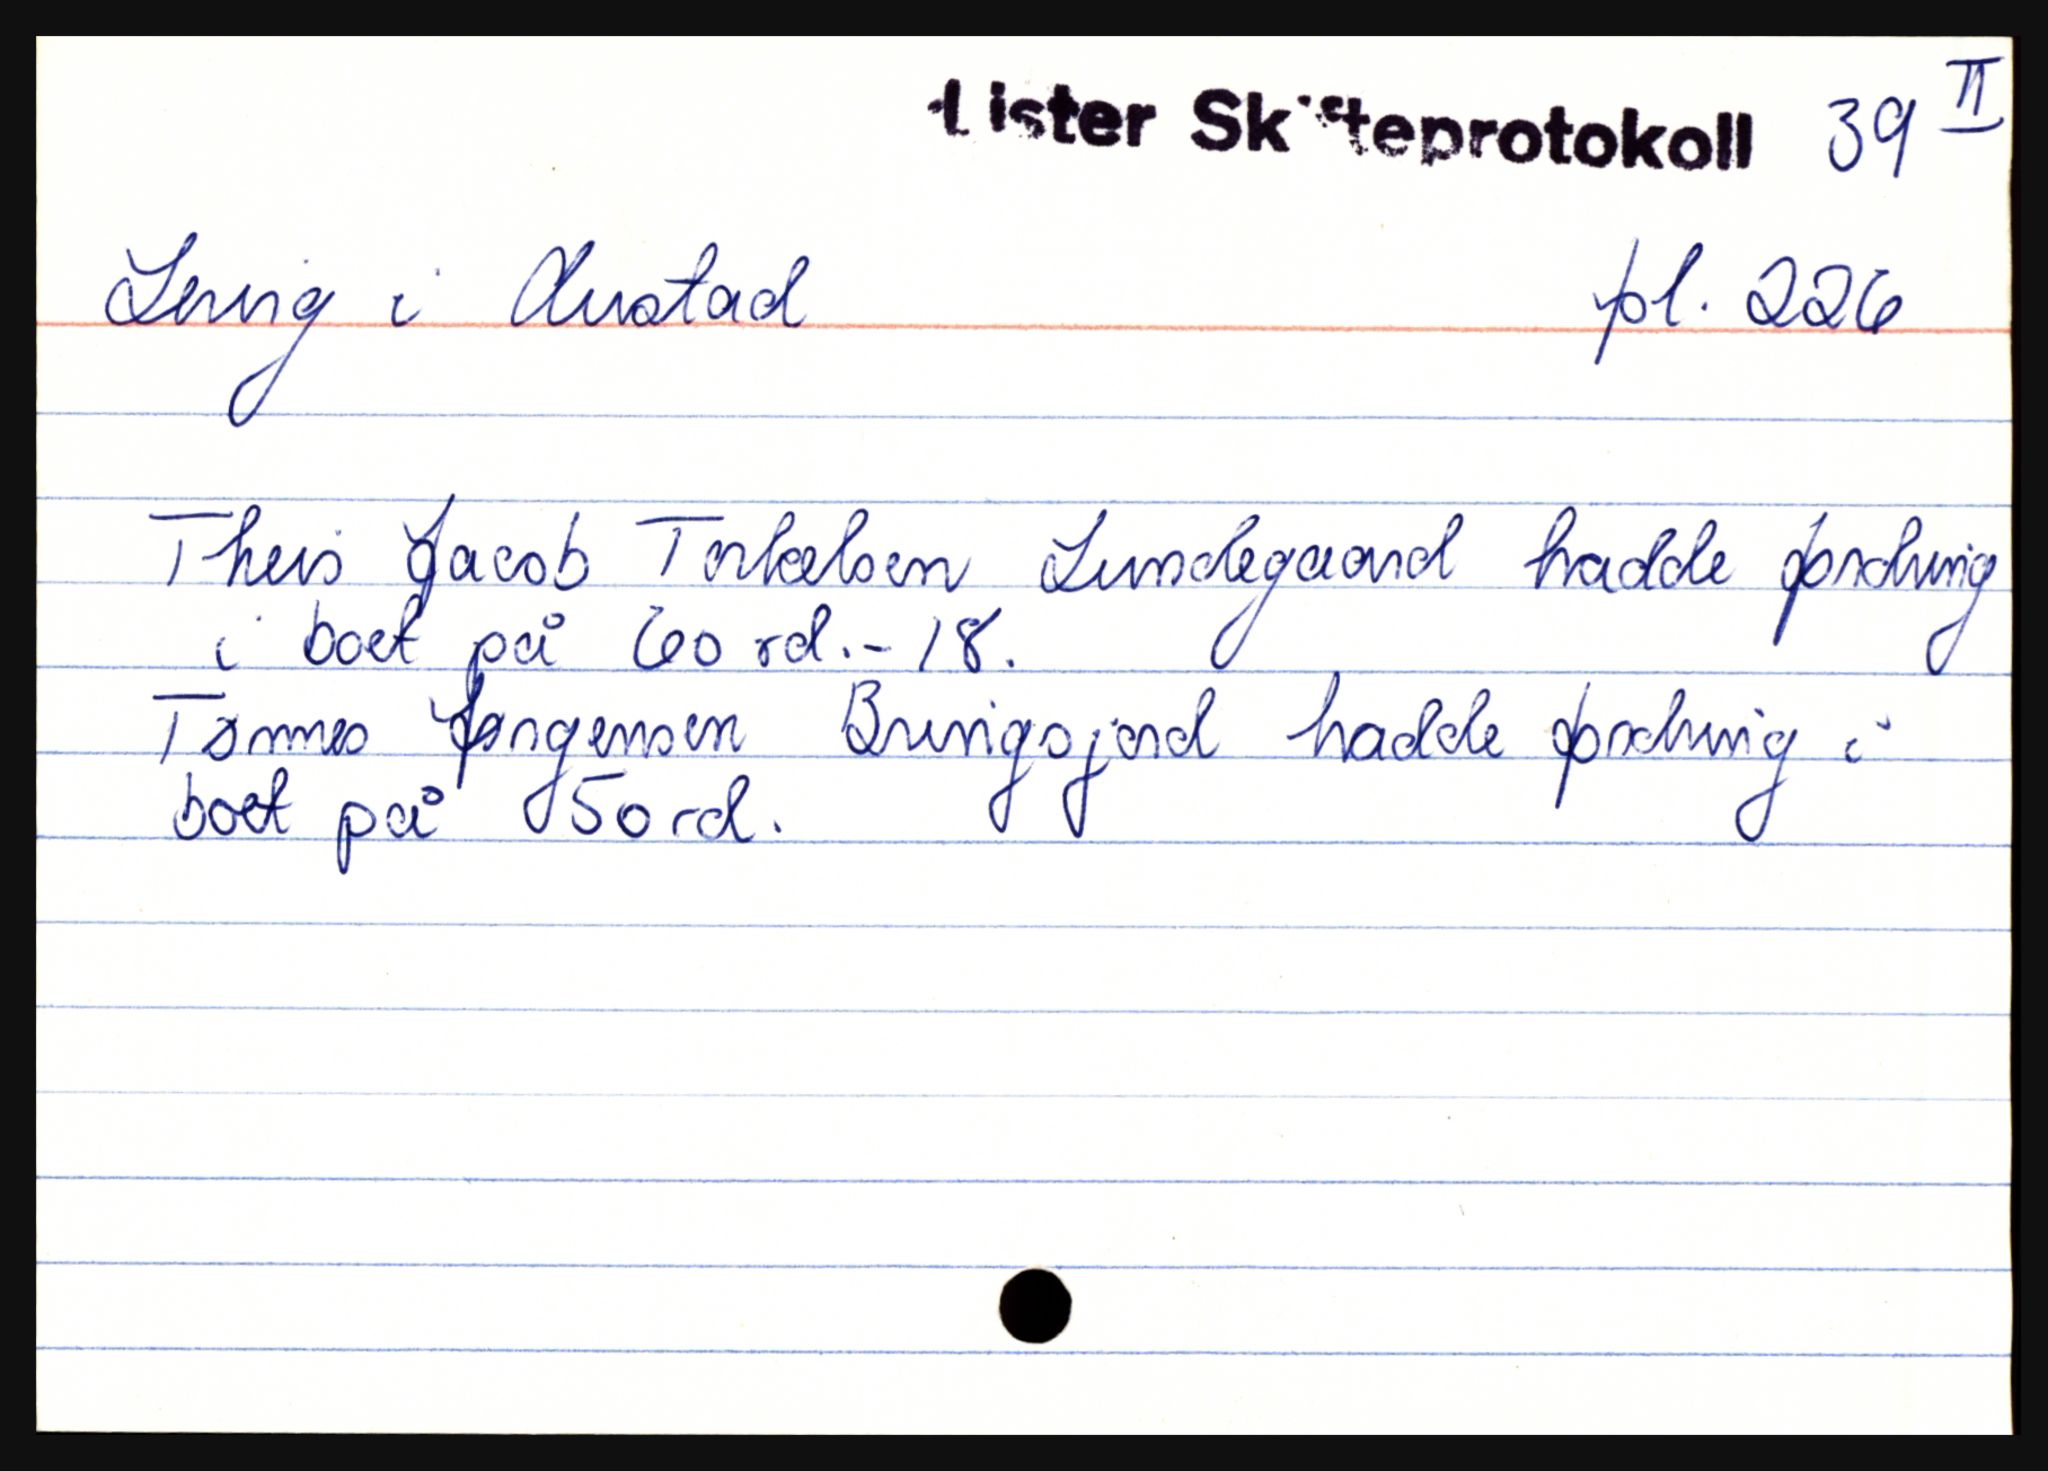 Lister Skifteprotokoll 39 II
Lervig i Austad pl. 226
Theis Jacob Torkelsen Lundegaard hadde fordring
i boet på 60 rd. - 18.
Tønnes Jørgensen Bringsjord hadde fordring i
boet på 50 rd.